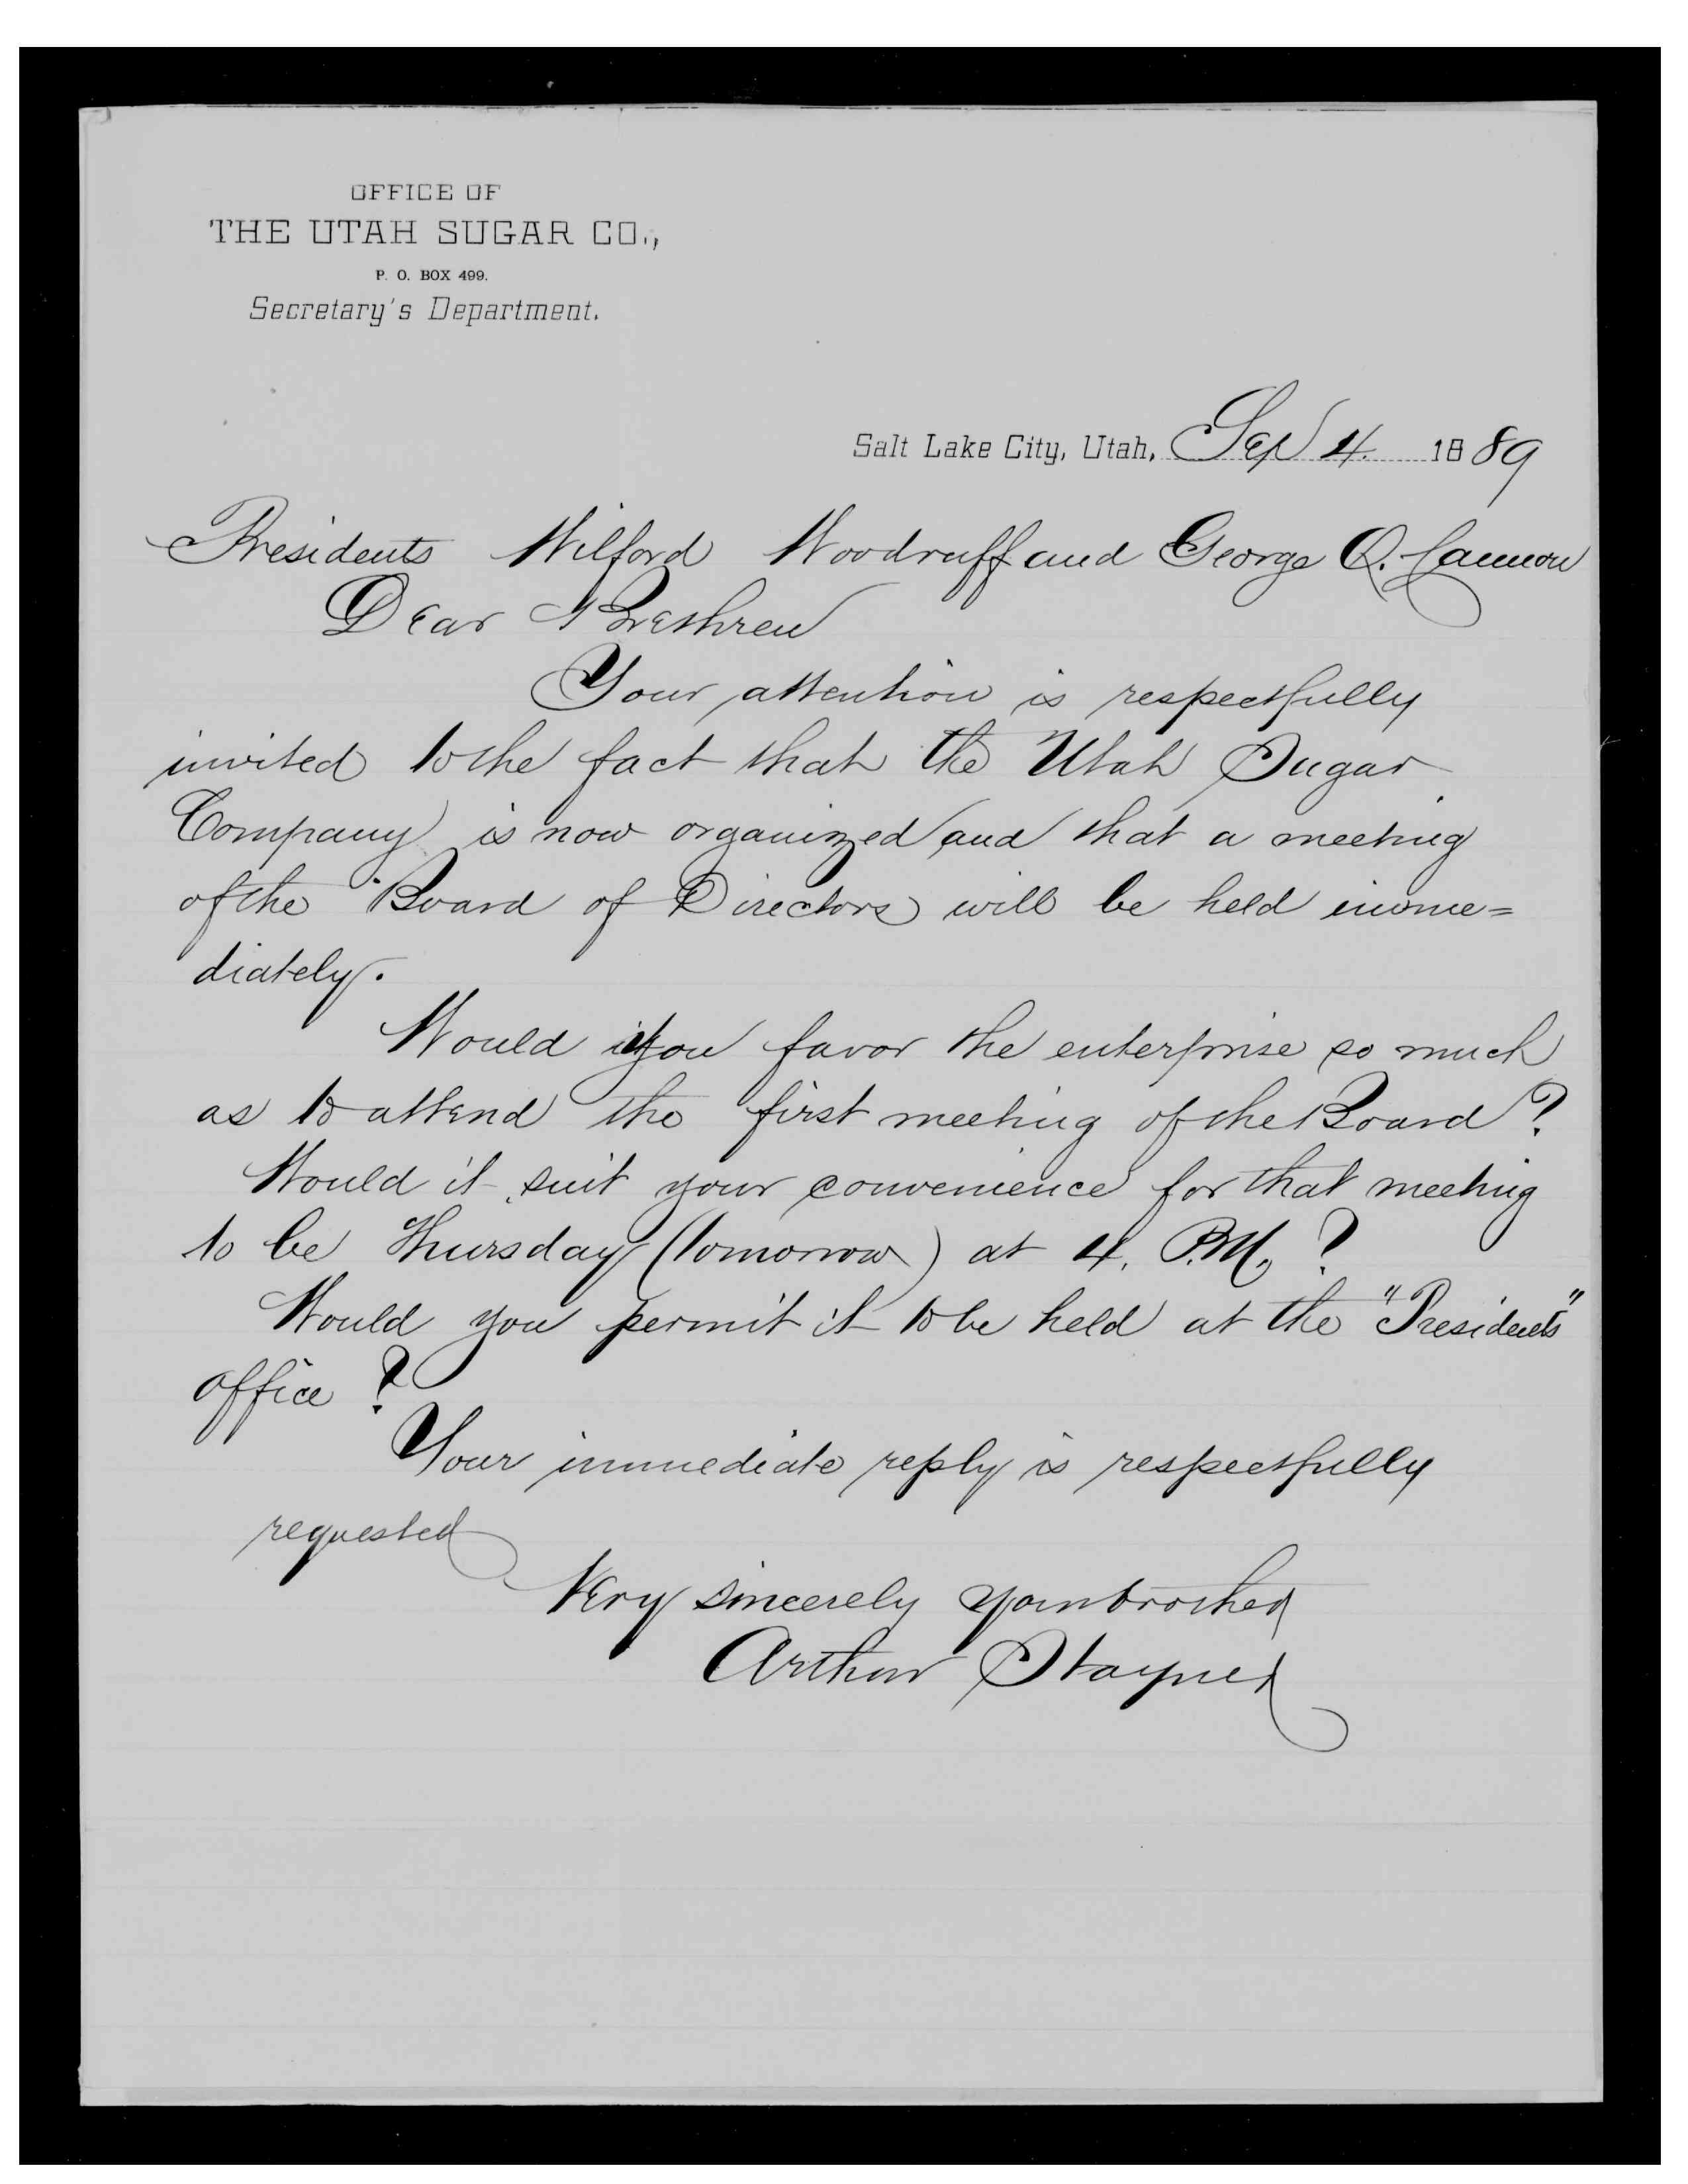 OFFICE OF
THE UTAH SUGAR CO.,
P. O. BOX 499.
Secretary's Department.
Salt Lake City, Utah, Sep 4. 1889
Presidents Wilford Woodruff and George Q. Cannon
Dear Brethren
Your attention is respectfully
invited to the fact that the Utah Sugar
Company is now organized and that a meeting
of the Board of Directors will be held imme=
diately.
Would you favor the enterprise so much
as to attend the first meeting of the Board?
Would it suit your convenience for that meeting
to be Thursday (tomorrow) at 4. P.M.?
Would you permit it to be held at the "Presidents"
office?
Your immediate reply is respectfully
requested
Very sincerely your brother
Arthur Stayner